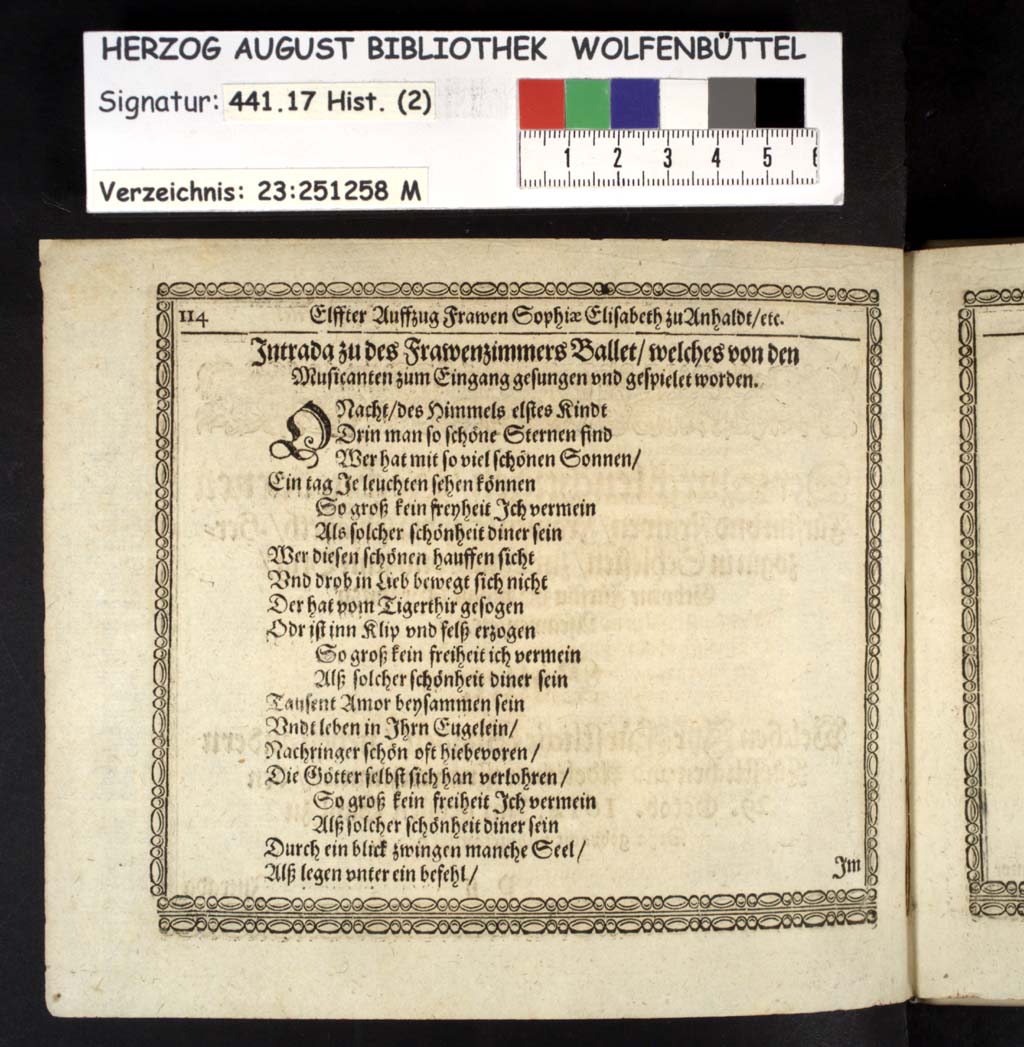 HERZOG AUGUST BIBLIOTHEK WOLFENBÜTTEL
Signatur: 441.17 Hist. (2)
1 2 3 4 5 6
Verzeichnis: 23:251258 M
114 Elffter Auffzug Frawen Sophiæ Elisabeth zu Anhaldt/etc.
Intrada zu des Frawenzimmers Ballet/ welches von den
Musicanten zum Eingang gesungen vnd gespielet worden.
O Nacht/des Himmels elstes Kindt
Drin man so schöne Sternen find
Wer hat mit so viel schönen Sonnen/
Ein tag Je leuchten sehen können
So groß kein freyheit Ich vermein
Als solcher schönheit diner sein
Wer diesen schönen hauffen sicht
Vnd drob in Lieb bewegt sich nicht
Der hat vom Tigerthir gesogen
Odr ist inn Klip vnd felß erzogen
So groß kein freiheit ich vermein
Alß solcher schönheit diner sein
Tausent Amor beysammen sein
Vndt leben in Ihrn Eugelein/
Nachringer schön oft hiebevoren/
Die Götter selbst sich han verlohren/
So groß kein freiheit Ich vermein
Alß solcher schönheit diner sein
Durch ein blick zwingen manche Seel/
Alß legen vnter ein befehl/
Im